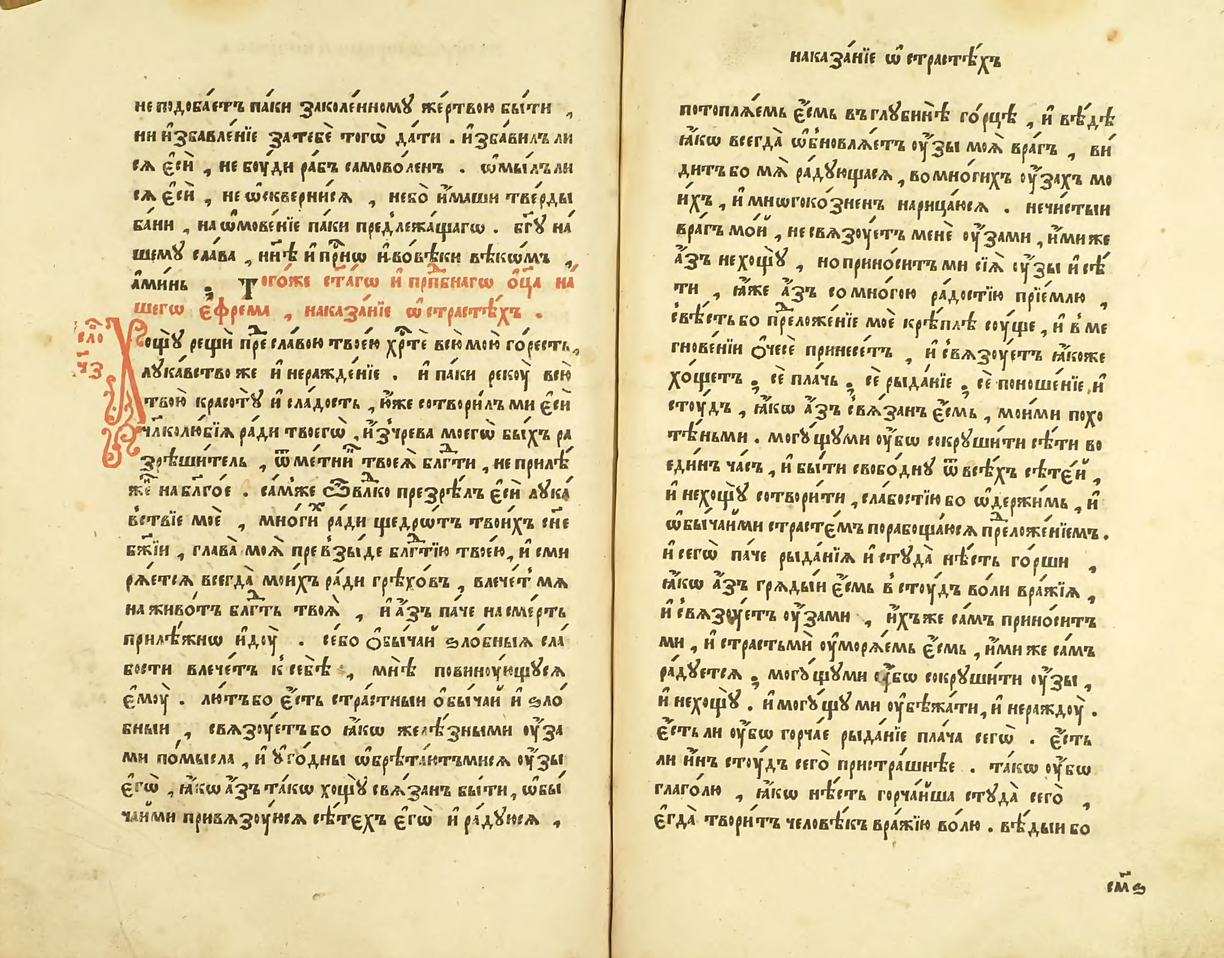 не подоба́етъ па́ки заколе́нномꙋ же́ртвою бы́ти ,
ни и҆збавле́нїе за тебѐ того̀ да́ти . и҆зба́вилъ ли
сѧ є҆сѝ , не бꙋ́ди ра́бъ самово́ленъ . ѡ҆мы́лъ ли
сѧ є҆сѝ , не ѡ҆скверни́сѧ , небо̀ и҆́маши тве́рды
ба́ни , на ѡ҆мове́нїе па́ки предлежа́щагѡ . бг҃ꙋ на́
шемꙋ сла́ва , нн҃ѣ и҆ прⷭ҇нѡ и҆ во вѣ́ки вѣкѡ́мъ ,
а҆ми́нь ; Того́же ст҃а́гѡ и҆ прпⷣбнагѡ ѻ҆ц҃а̀ на́
шегѡ є҆фре́ма , наказа́нїе ѡ҆ страстѣ́хъ .
сло́
ч҃з
Хощꙋ̀ рещѝ преⷣ сла́вою твое́ю хрⷭ҇тѐ всю̀ мою̀ го́ресть,
лꙋка́вство же и҆ неражде́нїе . и҆ па́ки рекꙋ̀ всю̀
твою̀ красотꙋ̀ и҆ сла́дость , ю҆́же сотвори́лъ ми є҆сѝ
чл҃колю́бїѧ ра́ди твоегѡ̀ , и҆з̾ чре́ва моегѡ̀ бы́хъ ра
зрѣши́тель , ѿметни́й твоеѧ̀ блгⷣти , не прилѣ́
же́ⁿ на бл҃го́е . са́мже ѽ влⷣко презрѣ́лъ є҆сѝ лꙋка́
вствїе моѐ , мно́гиⷯ ра́ди щедрѡ́тъ твои́хъ сн҃е
бж҃їи , глава̀ моѧ̀ превзы́де блгⷣтїю твое́ю, и҆ сми
рѧ́етсѧ всегда̀ мои́хъ ра́ди грѣхо́въ , влече́т̾ мѧ
на живо́тъ блгⷣть твоѧ̀ , и҆ а҆́зъ па́че на сме́рть
прилѣ́жнѡ и҆дꙋ̀ . се́бо ѻ҆бы́чаи ѕло́бныѧ сла́
бости влече́тъ к̾ себѣ̀ , мнѣ̀ повинꙋ́ющꙋсѧ
є҆мꙋ̀ . лю́тъбо є҆́сть стра́стныи ѻ҆бы́чаи и҆ ѕло́
бныи , свѧзꙋ́етъбо ꙗ҆́кѡ желѣ́зными оу҆́за
ми по́мысла , и҆ ᲂу҆го́дны ѡ҆брѣта́ютъмисѧ оу҆́зы
є҆гѡ̀ , ꙗ҆́кѡ а҆́зъ та́кѡ хощꙋ̀ свѧ́занъ бы́ти, ѡ҆бы́
чаими привѧзꙋ́юсѧ сѣ́техъ є҆гѡ̀ и҆ ра́дꙋюсѧ ,
наказа́нїе ѡ҆ страстѣ́хъ
потоплѧ́емь є҆́смь въ глꙋбинѣ̀ го́рцѣ , и҆ вѣ́дѣ
ꙗ҆́кѡ всегда̀ ѡ҆бновлѧ́етъ оу҆́зы моѧ̀ вра́гъ , ви́
дитъ бо мѧ̀ ра́дꙋющасѧ , во мно́гихъ оу҆́захъ мо
и́хъ , и҆ мнѡгоко́зненъ нарица́юсѧ . нечи́стыи
вра́гъ мо́й , не свѧзꙋ́етъ менѐ оу҆́зами , и҆́миже
а҆́зъ не хощꙋ̀ , но прино́ситъ ми сїѧ̀ оу҆́зы и҆ сѣ́
ти , ꙗ҆́же а҆́зъ со мно́гою ра́достїю прїе́млю ,
свѣ́стьбо преⷣложе́нїе моѐ крѣ́плѣ сꙋ́ще , и҆ в̾ ме
гнове́нїи ѻ҆́чесѐ принесе́тъ , и҆ свѧзꙋ́етъ ꙗ҆́коже
хо́щетъ ; сѐ пла́чь ; сѐ рыда́нїе ; сѐ поноше́нїе , и҆
стꙋ́дъ , ꙗ҆́кѡ а҆́зъ свѧ́занъ є҆́смь , мои́ми похо
тѣ́ньми . могꙋ́щꙋми оу҆́бѡ сокрꙋши́ти сѣ́ти во
еди́нъ ча́съ , и҆ бы́ти свобо́днꙋ ѿ всѣ́хъ сѣте́й ,
и҆ нехощꙋ̀ сотвори́ти , сла́бостїю бо ѡ҆держи́мь , и҆
ѡ҆бы́чаими страсте́мъ порабоща́юсѧ преⷣложе́нїемъ .
и҆ сегѡ̀ па́че рыда́нїѧ и҆ стꙋда̀ нѣ́сть го́рши ,
ꙗ҆́кѡ а҆́зъ грѧды́и є҆́смь в̾ стꙋ́дъ во́ли вра́жїѧ ,
и҆ свѧзꙋ́етъ оу҆́зами , и҆́хъже са́мъ прино́ситъ
ми , и҆ страстьмѝ оу҆морѧ́емь є҆́смь , и҆́миже са́мъ
ра́дꙋетсѧ ; могꙋ́щꙋми оу҆́бѡ сокрꙋши́ти оу҆́зы ,
и҆ нехощꙋ̀ . и҆ могꙋ́щꙋ ми оу҆бѣжа́ти , и҆ нераждꙋ̀ .
є҆́сть ли оу҆́бѡ горча́е рыда́нїе пла́ча сегѡ̀ . є҆́сть
ли и҆́нъ стꙋ́дъ сего̀ пристра́шнѣе . та́кѡ оу҆́бѡ
глаго́лю , ꙗ҆́кѡ нѣ́сть горча́йша стꙋда̀ сего̀ ,
є҆гда̀ твори́тъ человѣ́къ вра́жїю во́лю . вѣ́дыи бо
см҃ѕ